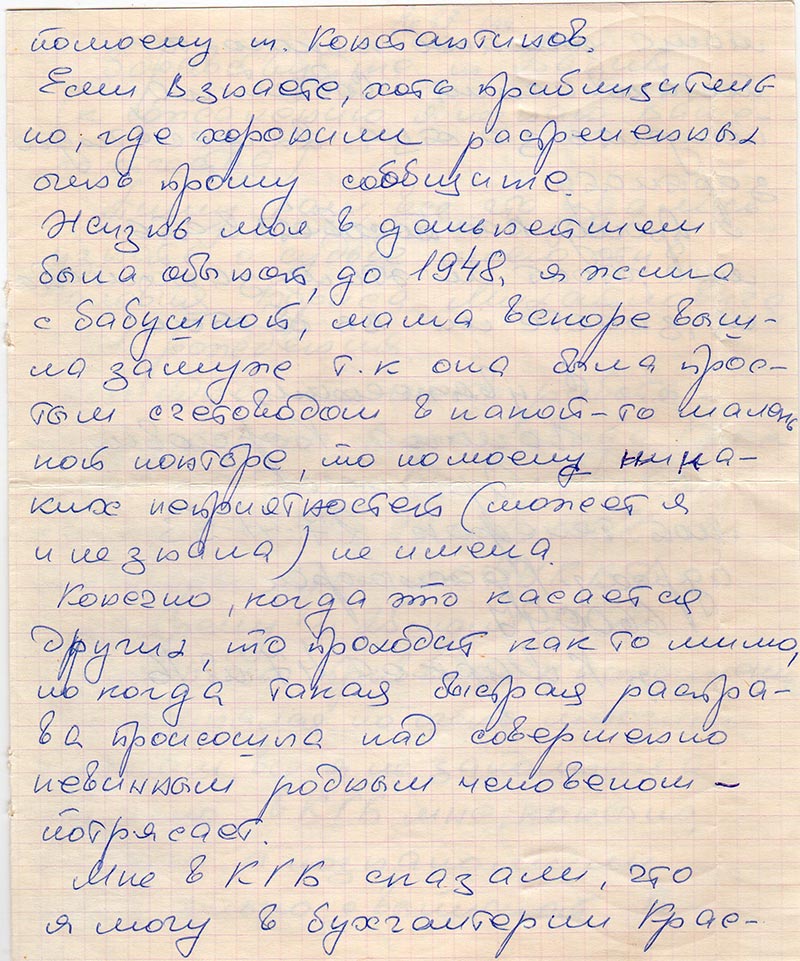 помоему т. Константинов.
Если Вы знаете, хоть приблизитель
но, где хоронили растреленных
очень прошу сообщите.
Жизнь моя в дальнейшем
была обычной, до 1948, я жила
с бабушкой, мама вскоре выш-
ла замуже т.к она была прос-
тым счетоводом в какой-то малень
кой конторе, то помоему ника-
ких неприятностей (может я
и не знала) не имела.
Конечно, когда это касается
Других, то проходит как то мимо,
но когда такая быстрая распра-
ва произошла над совершенно
невинным родным человеком –
потрясает.
Мне в КГБ сказали, что
я могу в бухгалтерии Крас-